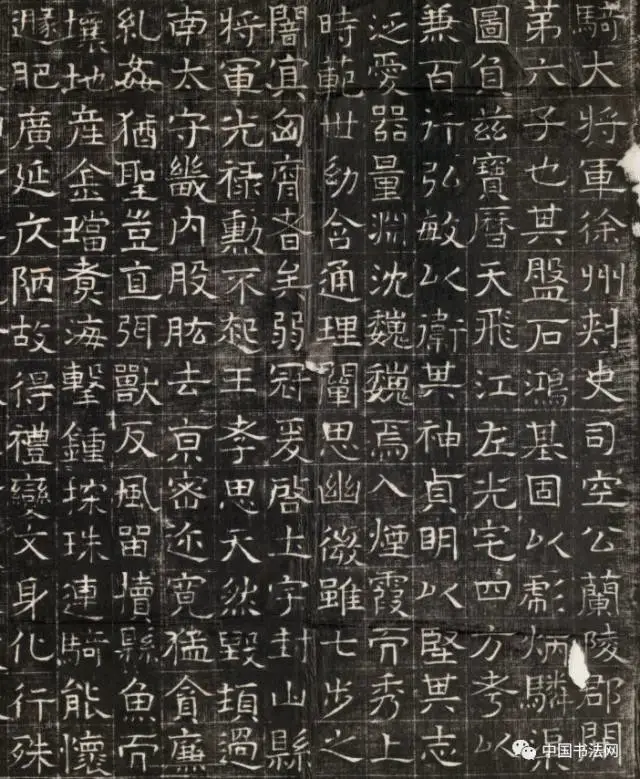 騎大將軍徐州刺史司空公蘭陵郡開
第六子也其盤石鴻基固以彪炳驎
圖負茲寶曆天飛江左光宅四方考以
兼百行弘敏以衛其神貞明以堅其志
泛愛器量淵沈巍巍焉入煙霞而秀上
時範丗幼含通理闡思幽微雖七步之
闇寅匈齊者矣弱冠爰啓土字封山縣
將軍光祿勳不起王孝思天然毀頓過
南太守畿內股肱去京密迩寬猛貪廉
乱姦猶聖豈直弭獸反風留犢縣魚而
壤地產金璫賮海擊鍾採珠連騎能懷
肥廣延陋故得禮變文身化行殊
中国书法网